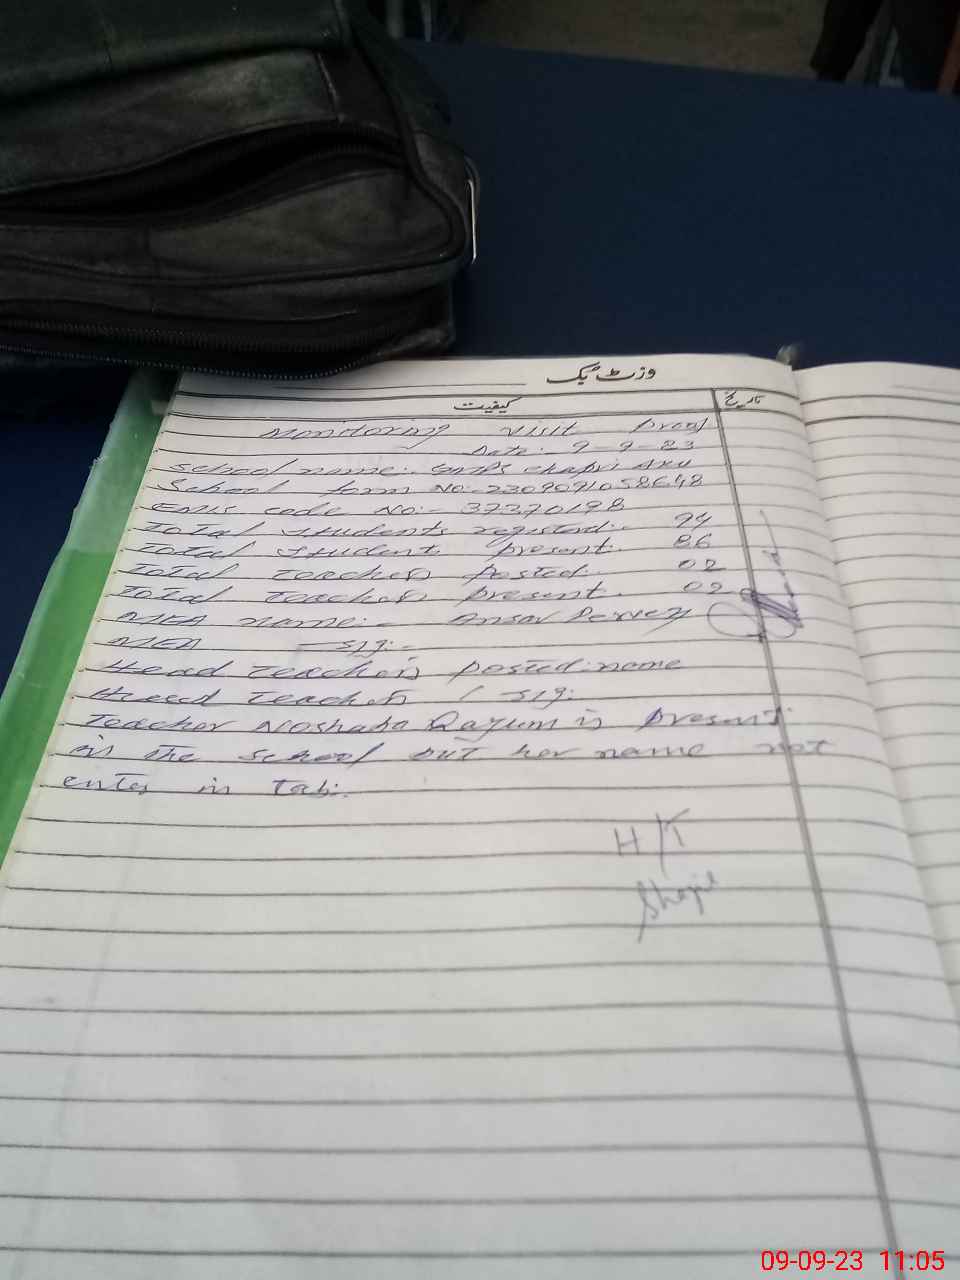 وزٹ بک
کیفیت
تاریخ
Monitoring visit Proof
Date:- 9-9-23
School name:- GMPS Chapri
School form No:- 2309091058648
EMIS code No:- 37370198
Total students registed:- 94
Total student present:- 86
Total teachers Posted:- 02
Total teachers present:- 02
MEA name:- Ansar Pervez
MEA sig:-
Head teachers posted:name
Head teachers / sig:
Teacher Noshaba Qayum is present
in the school but her name not
enter in Tab:.
H/T
09-09-23 11:05